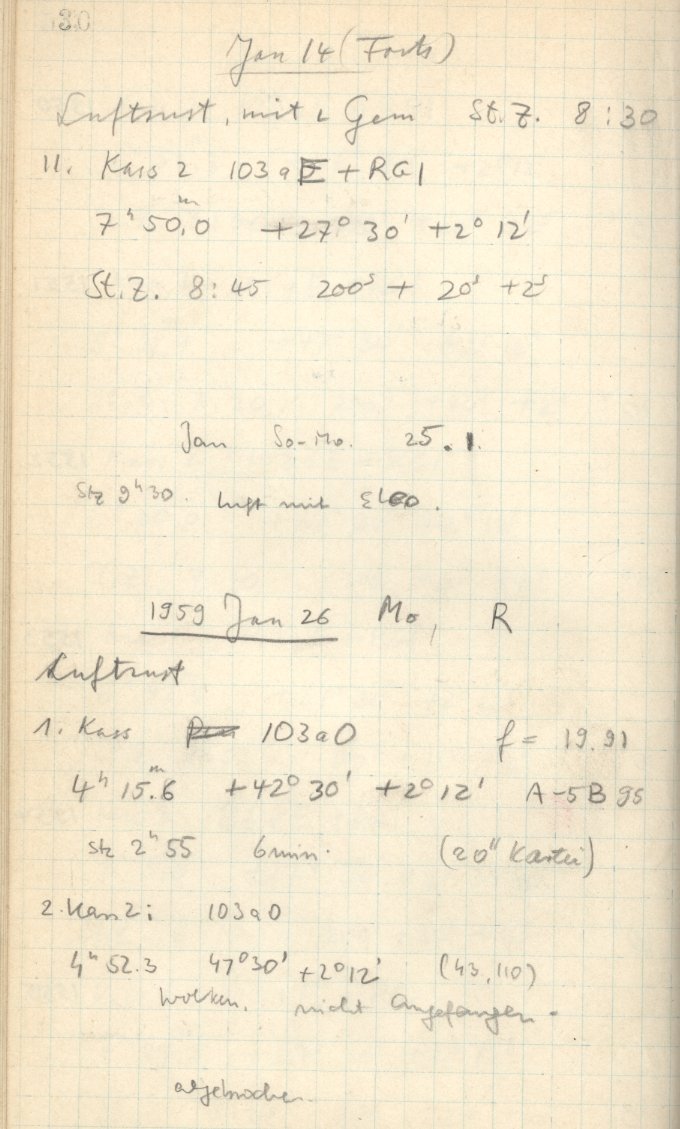 30
Jan 14 (Forts)
Luftunst, mit ι Gem St.Z. 8:30
11. Kass 2 103aE + RG1
7ʰ 50,0ᵐ +27° 30' +2° 12'
St.Z. 8:45 200ˢ + 20ˢ + 2ˢ
Jan So-Mo. 25.1.
Stz 9ʰ30. Luft mit ε Leo.
1959 Jan 26 Mo, R
Luftunst
1. Kass 103aO f = 19.91
4ʰ 15.6ᵐ +42° 30' +2° 12' A-5B 95
Stz 2ʰ 55 6min. (20" Kartei)
2. Kass 2: 103aO
4ʰ 52.3 47°30' +2°12' (43,110)
Wolken. nicht angefangen.
abgebrochen.